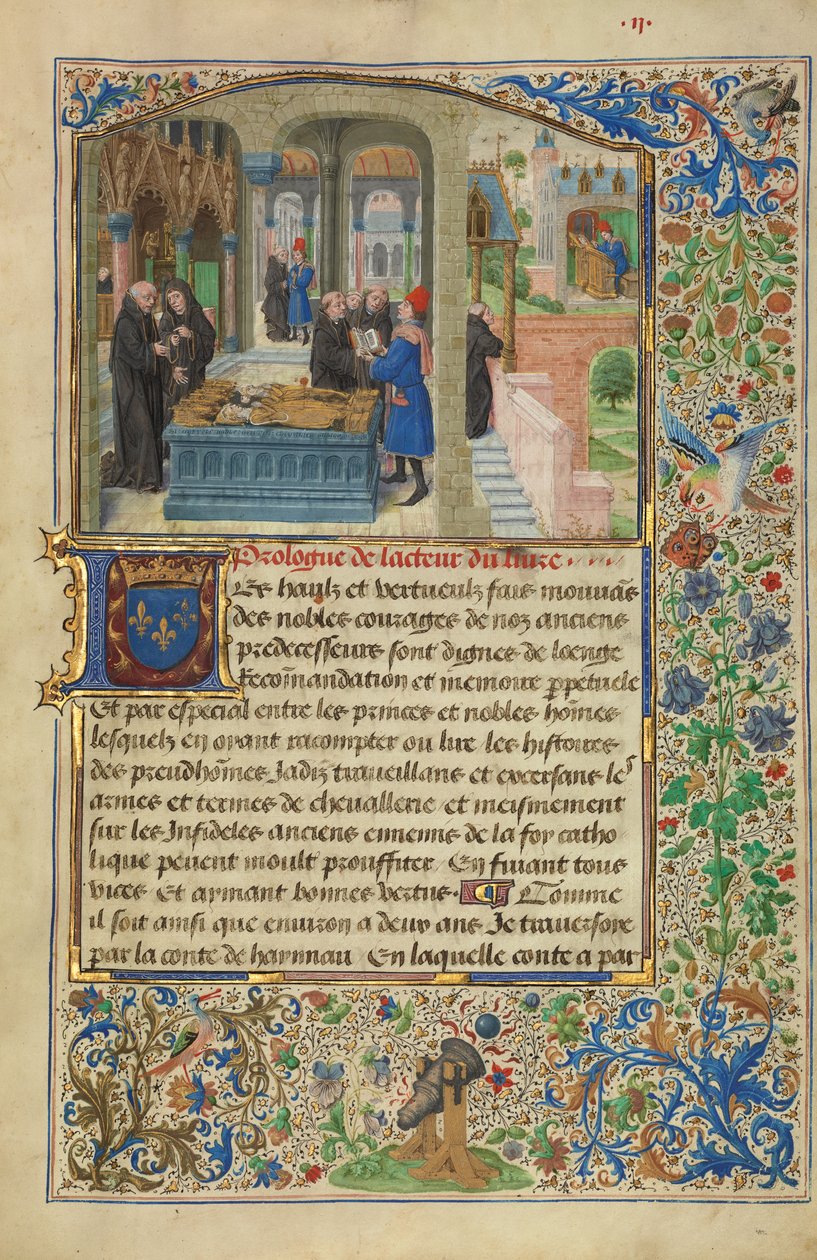 ·II·
Prologue de lacteur du liure
Les haulz et vertueulz fais mouuās
des nobles courages de noz anciens
predecesseurs sont dignes de loenge
Recōmandation et memoire ꝑpetuele
Et par especial entre les princes et nobles hōmes
lesquelz en oyant racompter ou lire les histoires
des preudhōmes Jadiz traueillans et excersans les
armes et termes de cheuallerie et meismement
sur les Infideles anciens ennemis de la foy catho
lique peuent moult prouffiter En fuiant tous
vices Et aymant bonnes vertus· Comme
il soit ainsi que enuiron a deux ans Je trauersoie
par la conte de haynnau En laquelle conte a par